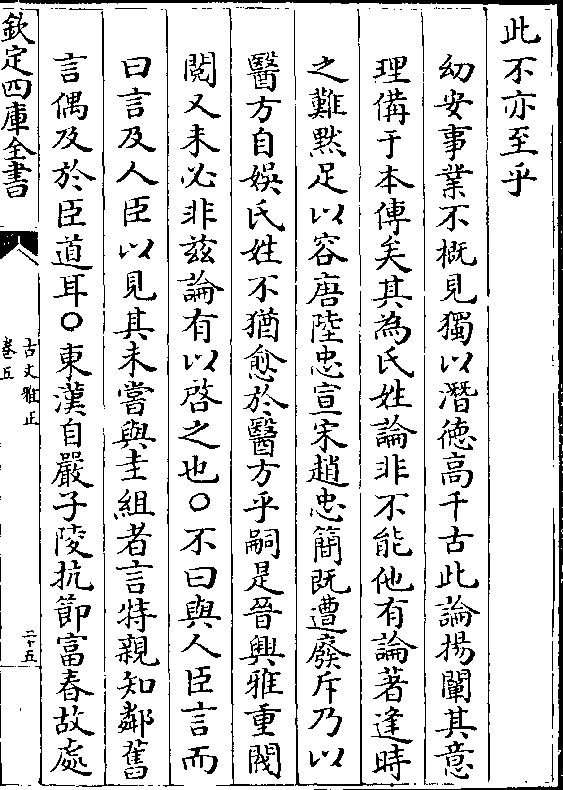 此不亦至乎
幼安事業不概見獨以潛德高千古此論揚闡其意
理備于本傳矣其為氏姓論非不能他有論著逢時
之難黙足以容唐陸忠宣宋趙忠簡既遭廢斥乃以
醫方自娯氏姓不猶愈於醫方乎嗣是晉興雅重閥
閲又未必非兹論有以啓之也○不曰與人臣言而
曰言及人臣以見其未嘗與圭組者言特親知鄰舊
言偶及於臣道耳○東漢自嚴子陵抗節富春故處
欽定四庫全書
古文雅正
卷五
二十五